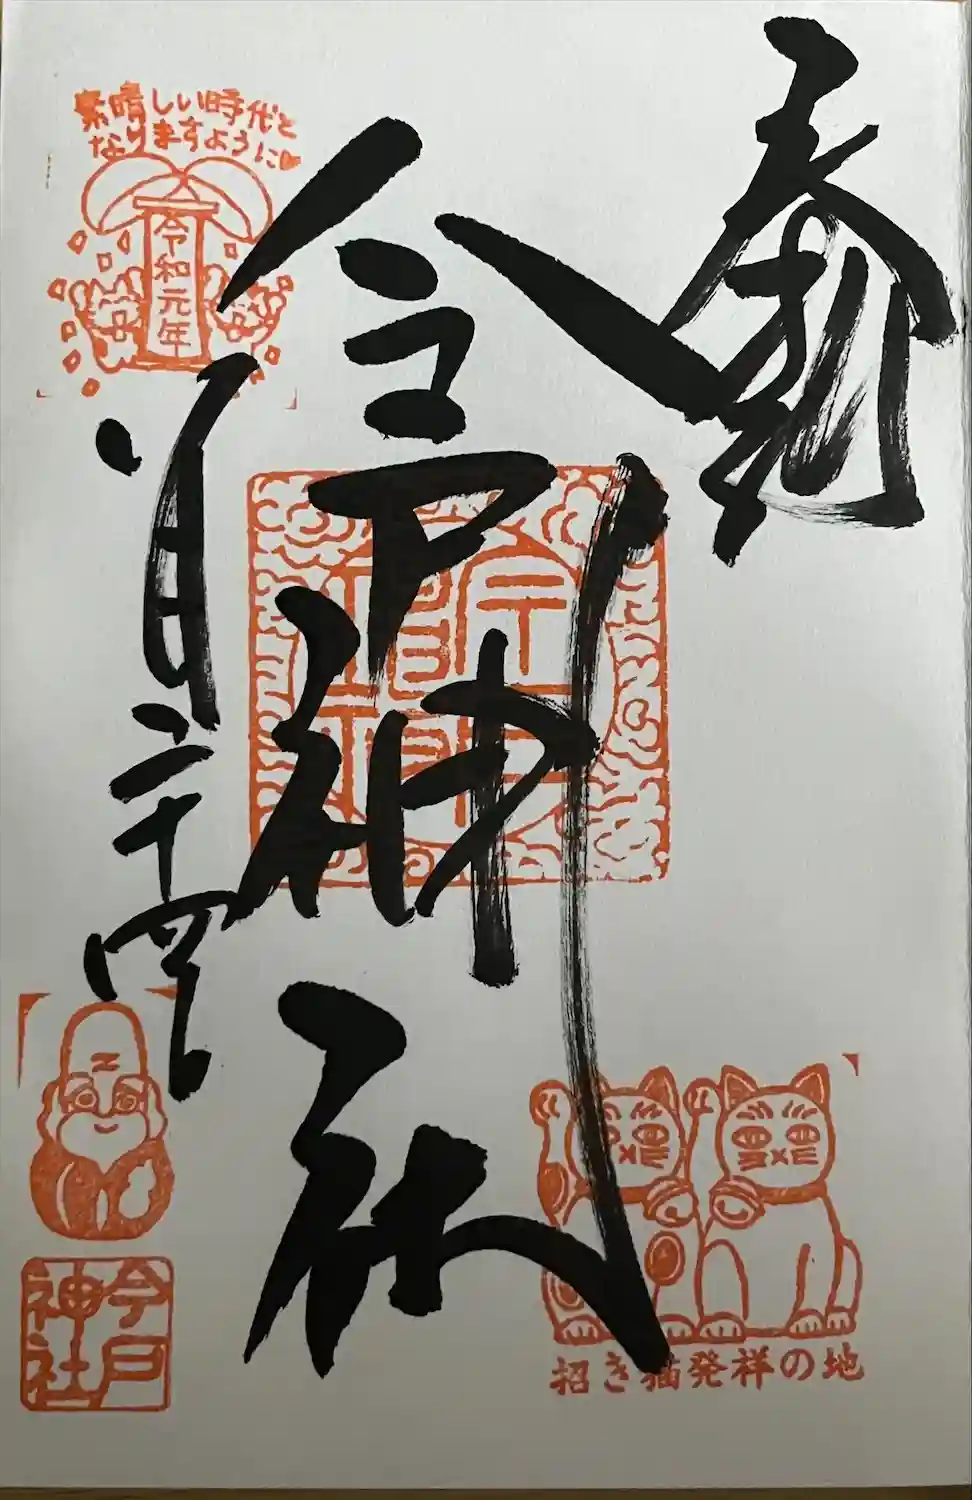 奉拝
今戸神社
素晴しい時代と
なりますように♥
令和元年
八月二十四日
今戸
神社
招き猫発祥の地